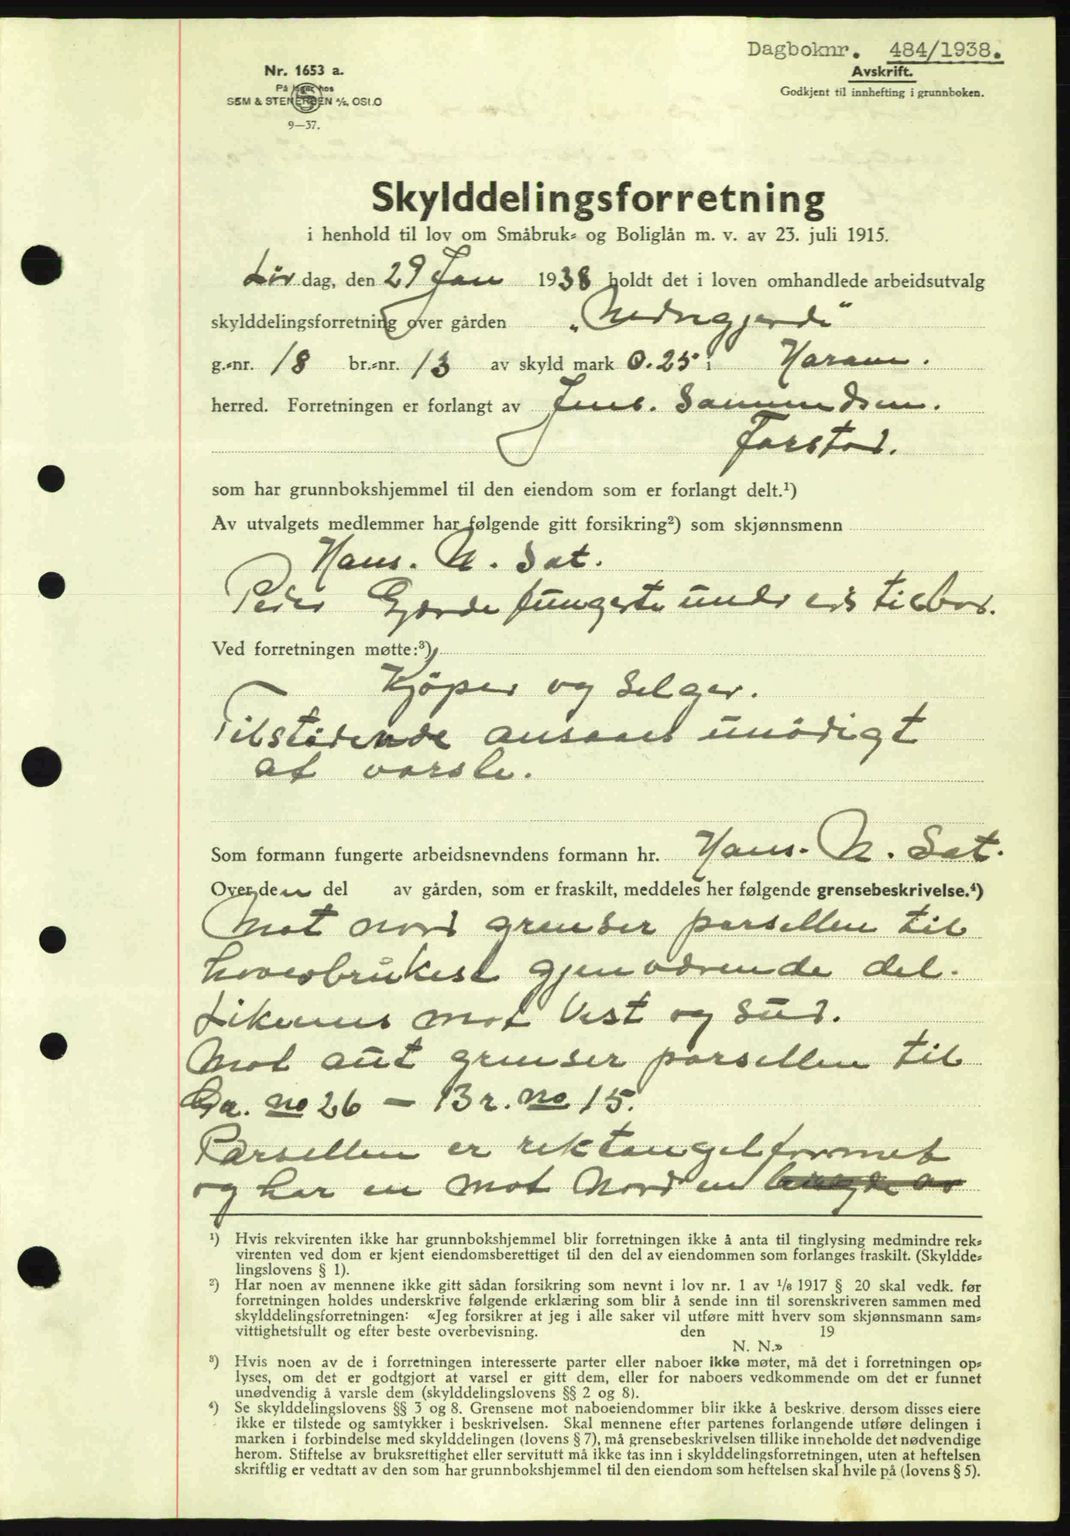 Dagboknr. 484/1938.
Avskrift.
Godkjent til innhefting i grunnboken.
Nr. 1653 a.
På lager hos
SEM & STENERSEN A/S, OSLO
9—37.
Skylddelingsforretning
i henhold til lov om Småbruk- og Boliglån m. v. av 23. juli 1915.
Lør dag, den 29 Jan 1938 holdt det i loven omhandlede arbeidsutvalg
skylddelingsforretning over gården „Nedregjerde“
g.-nr. 18 br.-nr. 13 av skyld mark 0.25 i Haram.
herred. Forretningen er forlangt av Jens. Samundsen.
Farstad.
som har grunnbokshjemmel til den eiendom som er forlangt delt.¹)
Av utvalgets medlemmer har følgende gitt forsikring²) som skjønnsmenn
Hans. N. Sat.
Peder Gjerde fungerte under
Ved forretningen møtte:³)
Kjöper og Selger.
Tilstödende ansaaes unödigt
at varsle.
Som formann fungerte arbeidsnevndens formann hr. Hans. N. Sat.
Over den del av gården, som er fraskilt, meddeles her følgende grensebeskrivelse.⁴)
Mot nord grenser parsellen til
hovedbrukest gjenværende del.
Likenes mot Vest og Süd.
Mot aust grenser parsellen til
Ga. no 26 — Br. no 15.
Parsellen er rektangelformet
og har en mot Nord en
¹) Hvis rekvirenten ikke har grunnbokshjemmel blir forretningen ikke å anta til tinglysing medmindre rek-
virenten ved dom er kjent eiendomsberettiget til den del av eiendommen som forlanges fraskilt. (Skyldde-
lingslovens § 1).
²) Har noen av mennene ikke gitt sådan forsikring som nevnt i lov nr. 1 av ¹/₆ 1917 § 20 skal vedk. før
forretningen holdes underskrive følgende erklæring som blir å sende inn til sorenskriveren sammen med
skylddelingsforretningen: «Jeg forsikrer at jeg i alle saker vil utføre mitt hverv som skjønnsmann sam-
vittighetsfullt og efter beste overbevisning. den 19
N. N.»
³) Hvis noen av de i forretningen interesserte parter eller naboer ikke møter, må det i forretningen op-
lyses, om det er godtgjort at varsel er gitt dem, eller for naboers vedkommende om det er funnet
unødvendig å varsle dem (skylddelingslovens §§ 2 og 8).
⁴) Se skylddelingslovens §§ 3 og 8. Grensene mot naboeiendommer blir ikke å beskrive dersom disses eiere
ikke er tilstede og samtykker i beskrivelsen. Skal mennene efter partenes forlangende utføre delingen i
marken i forbindelse med skylddelingen (lovens § 7), må grensebeskrivelsen tillike inneholde det nødvendige
herom. Stiftelse av bruksrettighet eller servitutt må ikke tas inn i skylddelingsforretningen, uten at heftelsen
skriftlig er vedtatt av den som har grunnbokshjemmel til den eiendom som heftelsen skal hvile på (lovens § 5).